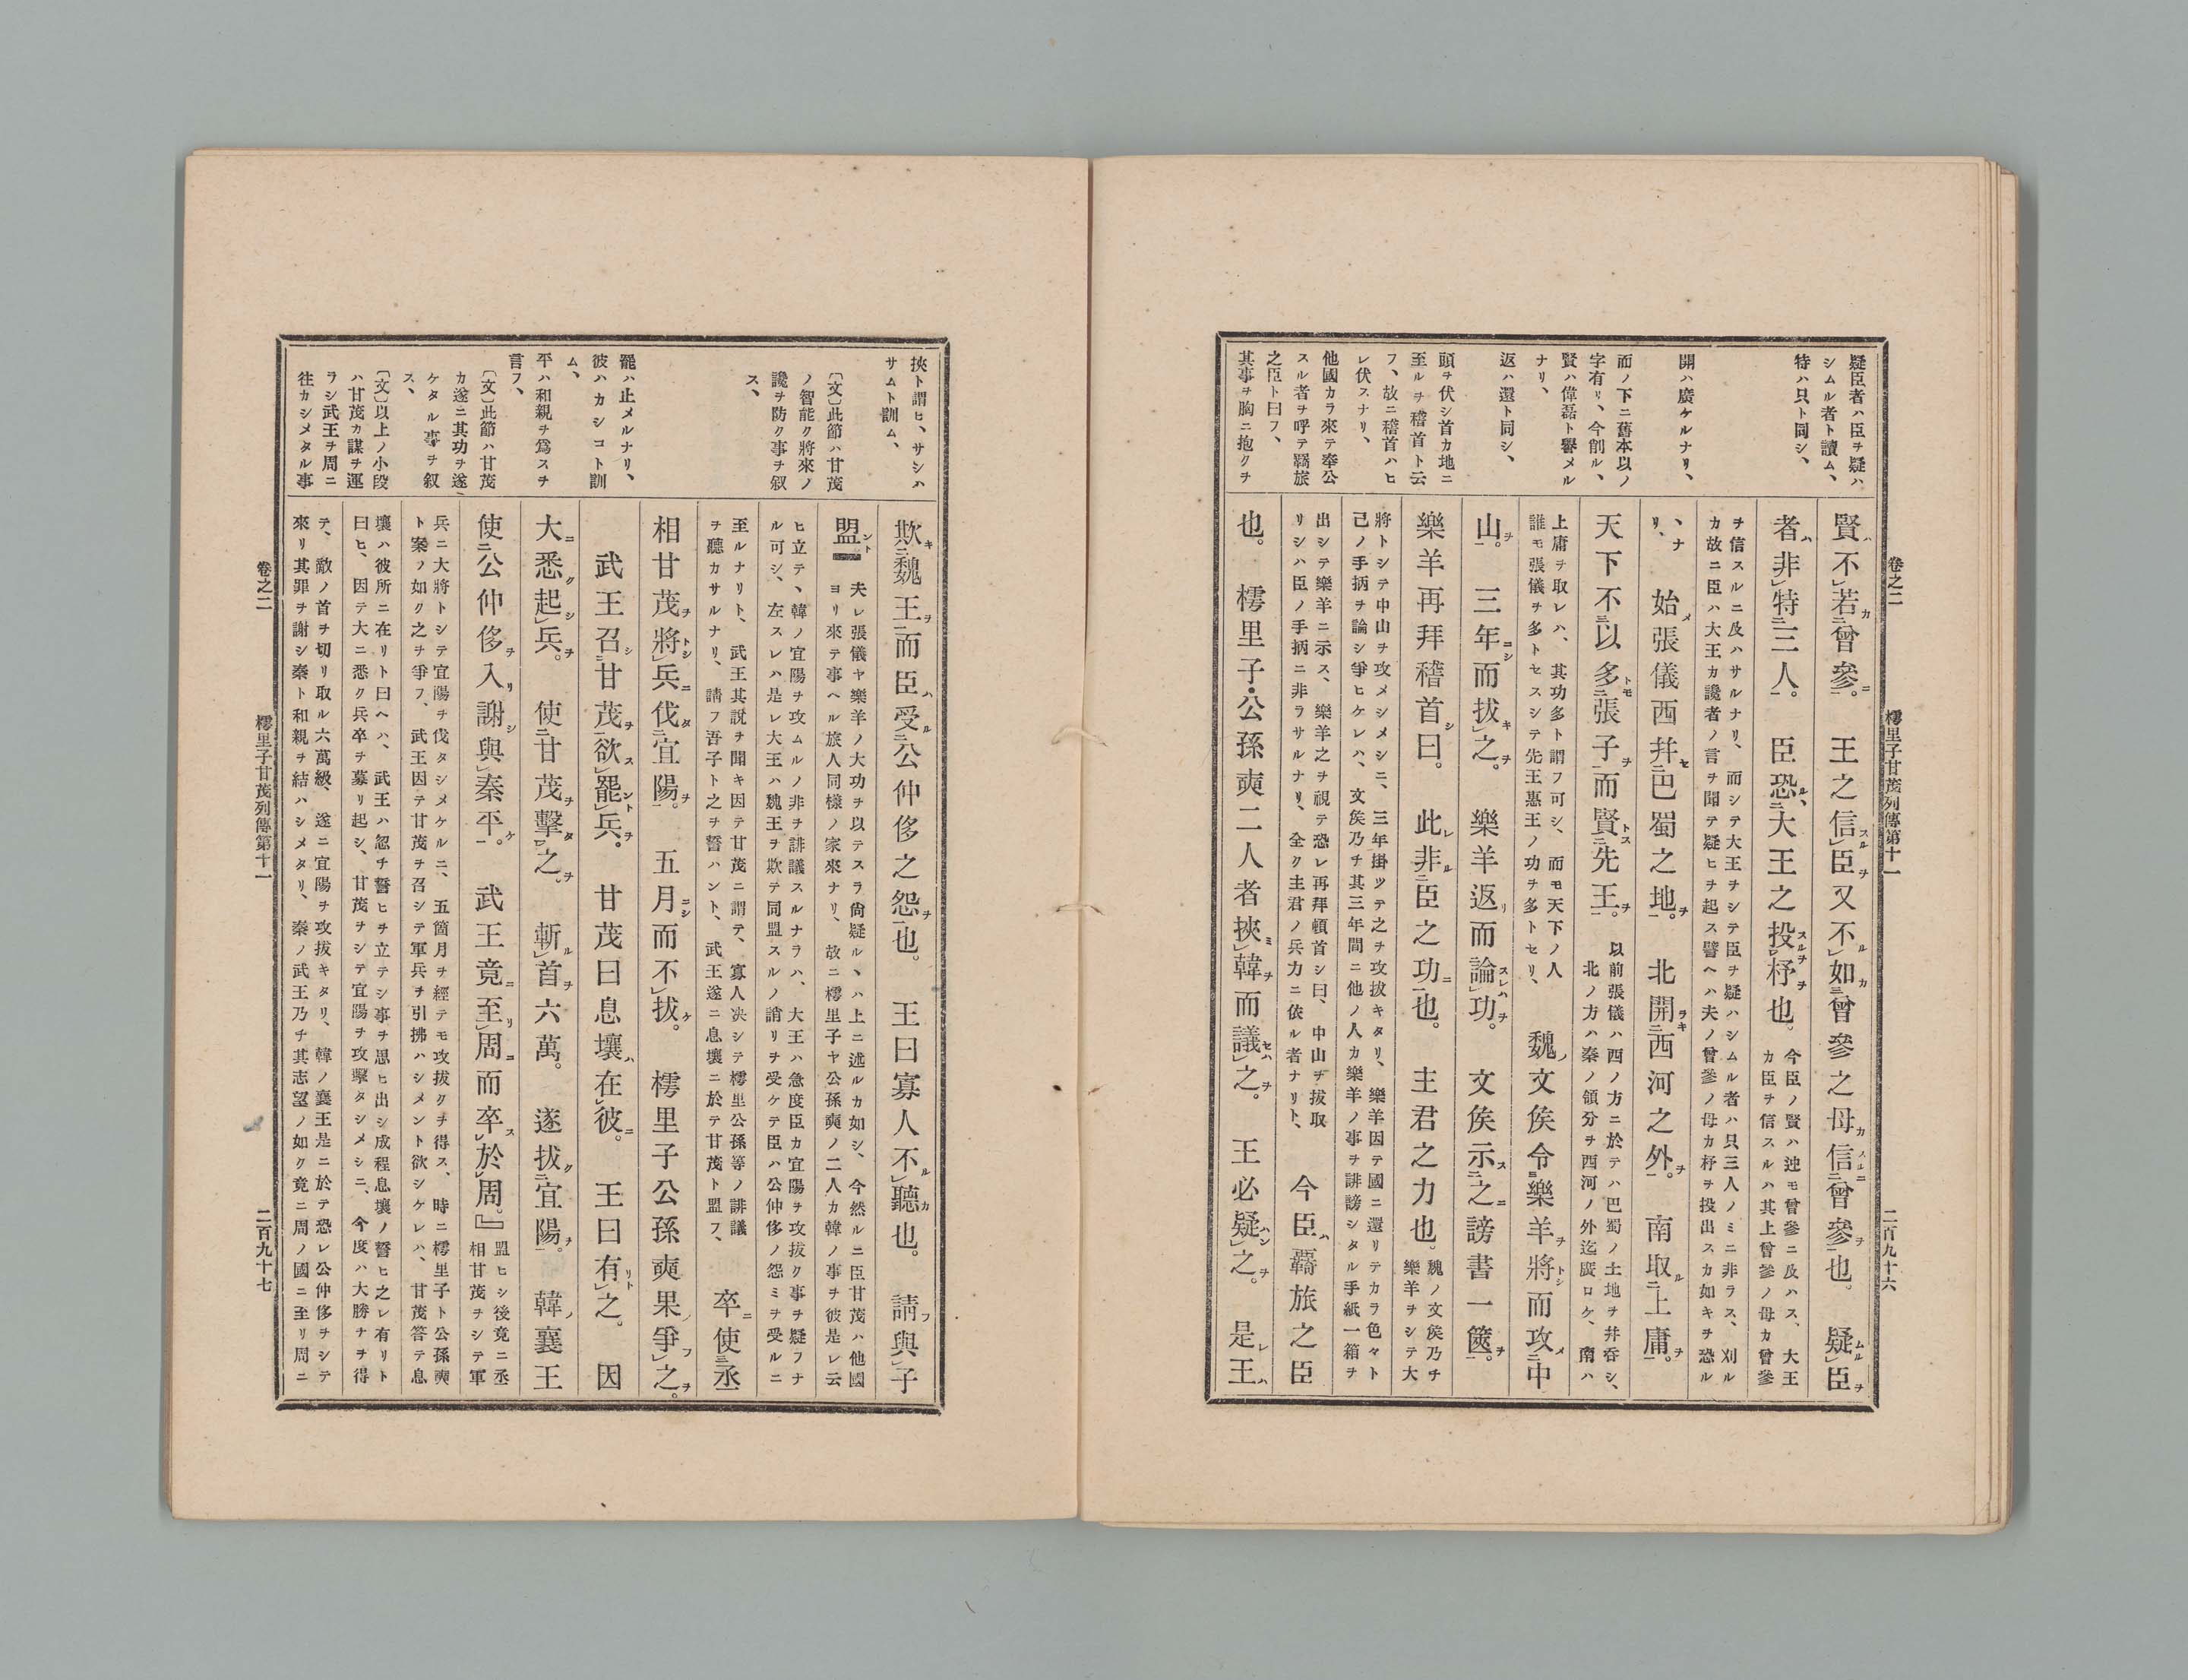 卷之二　樗里子甘茂列傳第十一　二百九十六
疑臣者ハ臣ヲ疑ハ
シムル者ト讀ム、
特ハ只ト同シ、
開ハ廣ケルナリ、
而ノ下ニ舊本以ノ
字有リ、今削ル、
賢ハ偉磊ト譽メル
ナリ、
返ハ還ト同シ、
頭ヲ伏シ首カ地ニ
至ルヲ稽首ト云
フ、故ニ稽首ハヒ
レ伏スナリ、
他國カラ來テ奉公
スル者ヲ呼テ羇旅
之臣ト曰フ、
其事ヲ胸ニ抱クヲ
賢不若曾參。王之信臣又不如曾參之母信曾參也。疑臣
者非特三人。臣恐大王之投杼也。
今臣ノ賢ハ迚モ曾參ニ及ハス、大王
カ臣ヲ信スルハ其上曾參ノ母カ曾參
ヲ信スルニ及ハサルナリ、而シテ大王ヲシテ臣ヲ疑ハシムル者ハ只三人ノミニ非ラス、刈ル
カ故ニ臣ハ大王カ讒者ノ言ヲ聞テ疑ヒヲ起ス譬ヘハ夫ノ曾參ノ母カ杼ヲ投出スカ如キヲ恐ル
ヽナ
リ、
始張儀西幷巴蜀之地。北開西河之外。南取上庸。
天下不以多張子而賢先王。
以前張儀ハ西ノ方ニ於テハ巴蜀ノ土地ヲ幷呑シ、
北ノ方ハ秦ノ領分ヲ西河ノ外迄廣ロケ、南ハ
上庸ヲ取レハ、其功多ト謂フ可シ、而モ天下ノ人
誰モ張儀ヲ多トセスシテ先王惠王ノ功ヲ多トセリ、
魏文侯令樂羊將而攻中
山。三年而拔之。樂羊返而論功。文侯示之謗書一篋。
樂羊再拜稽首曰。此非臣之功也。主君之力也。
魏ノ文侯乃チ
樂羊ヲシテ大
將トシテ中山ヲ攻メシメシニ、三年掛ツテ之ヲ攻拔キタリ、樂羊因テ國ニ還リテカラ色々ト
己ノ手柄ヲ論シ爭ヒケレハ、文侯乃チ其三年間ニ他ノ人カ樂羊ノ事ヲ誹謗シタル手紙一箱ヲ
出シテ樂羊ニ示ス、樂羊之ヲ視テ恐レ再拜頓首シ曰、中山ヲ拔取
リシハ臣ノ手柄ニ非ラサルナリ、全ク主君ノ兵力ニ依ル者ナリト、
今臣羇旅之臣
也。樗里子・公孫奭二人者挾韓而議之。王必疑之。是王
挾ト謂ヒ、サシハ
サムト訓ム、
〔文〕此節ハ甘茂
ノ智能ク將來ノ
讒ヲ防ク事ヲ叙
ス、
罷ハ止メルナリ、
彼ハカシコト訓
ム、
平ハ和親ヲ爲スヲ
言フ、
〔文〕此節ハ甘茂
カ遂ニ其功ヲ遂
ケタル事ヲ叙
ス、
〔文〕以上ノ小段
ハ甘茂カ謀ヲ運
ラシ武王ヲ周ニ
往カシメタル事
欺魏王而臣受公仲侈之怨也。王曰寡人不聽也。請與子
盟
夫レ張儀ヤ樂羊ノ大功ヲ以テスラ尙疑ルヽハ上ニ述ルカ如シ、今然ルニ臣甘茂ハ他國
ヨリ來テ事ヘル旅人同樣ノ家來ナリ、故ニ樗里子ヤ公孫奭ノ二人カ韓ノ事ヲ彼是レ云
ヒ立テヽ韓ノ宜陽ヲ攻ムルノ非ヲ誹議スルナラハ、大王ハ急度臣カ宜陽ヲ攻拔ク事ヲ疑フナ
ル可シ、左スレハ是レ大王ハ魏王ヲ欺テ同盟スルノ誚リヲ受ケテ臣ハ公仲侈ノ怨ミヲ受ルニ
至ルナリト、武王其說ヲ聞キ因テ甘茂ニ謂テ、寡人決シテ樗里公孫等ノ誹議
ヲ聽カサルナリ、請フ吾子ト之ヲ誓ハント、武王遂ニ息壤ニ於テ甘茂ト盟フ、
卒使丞
相甘茂將兵伐宜陽。五月而不拔。樗里子公孫奭果爭之。
武王召甘茂欲罷兵。甘茂曰息壤在彼。王曰有之。因
大悉起兵。使甘茂擊之。斬首六萬。遂拔宜陽。韓襄王
使公仲侈入謝與秦平。武王竟至周而卒於周。』
盟ヒシ後竟ニ丞
相甘茂ヲシテ軍
兵ニ大將トシテ宜陽ヲ伐タシメケルニ、五箇月ヲ經テモ攻拔クヲ得ス、時ニ樗里子ト公孫奭
ト案ノ如ク之ヲ爭フ、武王因テ甘茂ヲ召シテ軍兵ヲ引拂ハシメント欲シケレハ、甘茂答テ息
壤ハ彼所ニ在リト曰ヘハ、武王ハ忽チ誓ヒヲ立テシ事ヲ思ヒ出シ成程息壤ノ誓ヒ之レ有リト
曰ヒ、因テ大ニ悉ク兵卒ヲ募リ起シ、甘茂ヲシテ宜陽ヲ攻擊タシメシニ、今度ハ大勝ナヲ得
テ、敵ノ首ヲ切リ取ル六萬級、遂ニ宜陽ヲ攻拔キタリ、韓ノ襄王是ニ於テ恐レ公仲侈ヲシテ
來リ其罪ヲ謝シ秦ト和親ヲ結ハシメタリ、秦ノ武王乃チ其志望ノ如ク竟ニ周ノ國ニ至リ周ニ
卷之二　樗里子甘茂列傳第十一　二百九十七